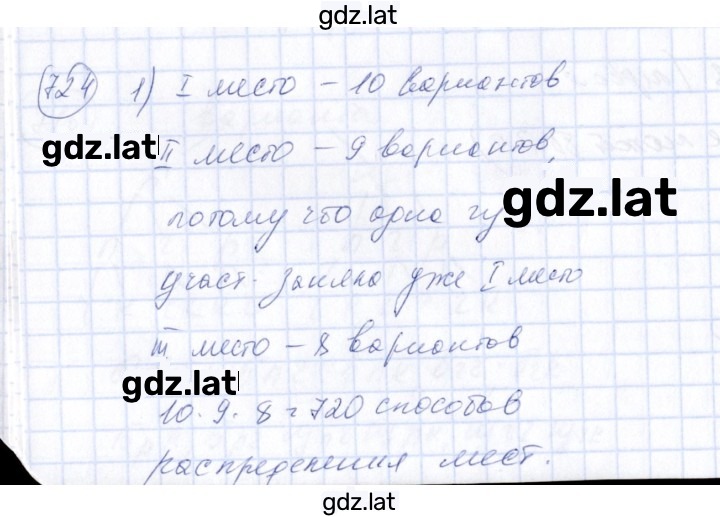 gdz.lat
724 1) I место – 10 вариантов
gdz.lat
II место – 9 вариантов,
gdz.lat
потому что одна
участ. заняла уже I место
III место – 8 вариантов
gdz.lat
10 · 9 · 8 = 720 способов
распределения мест.
gdz.lat